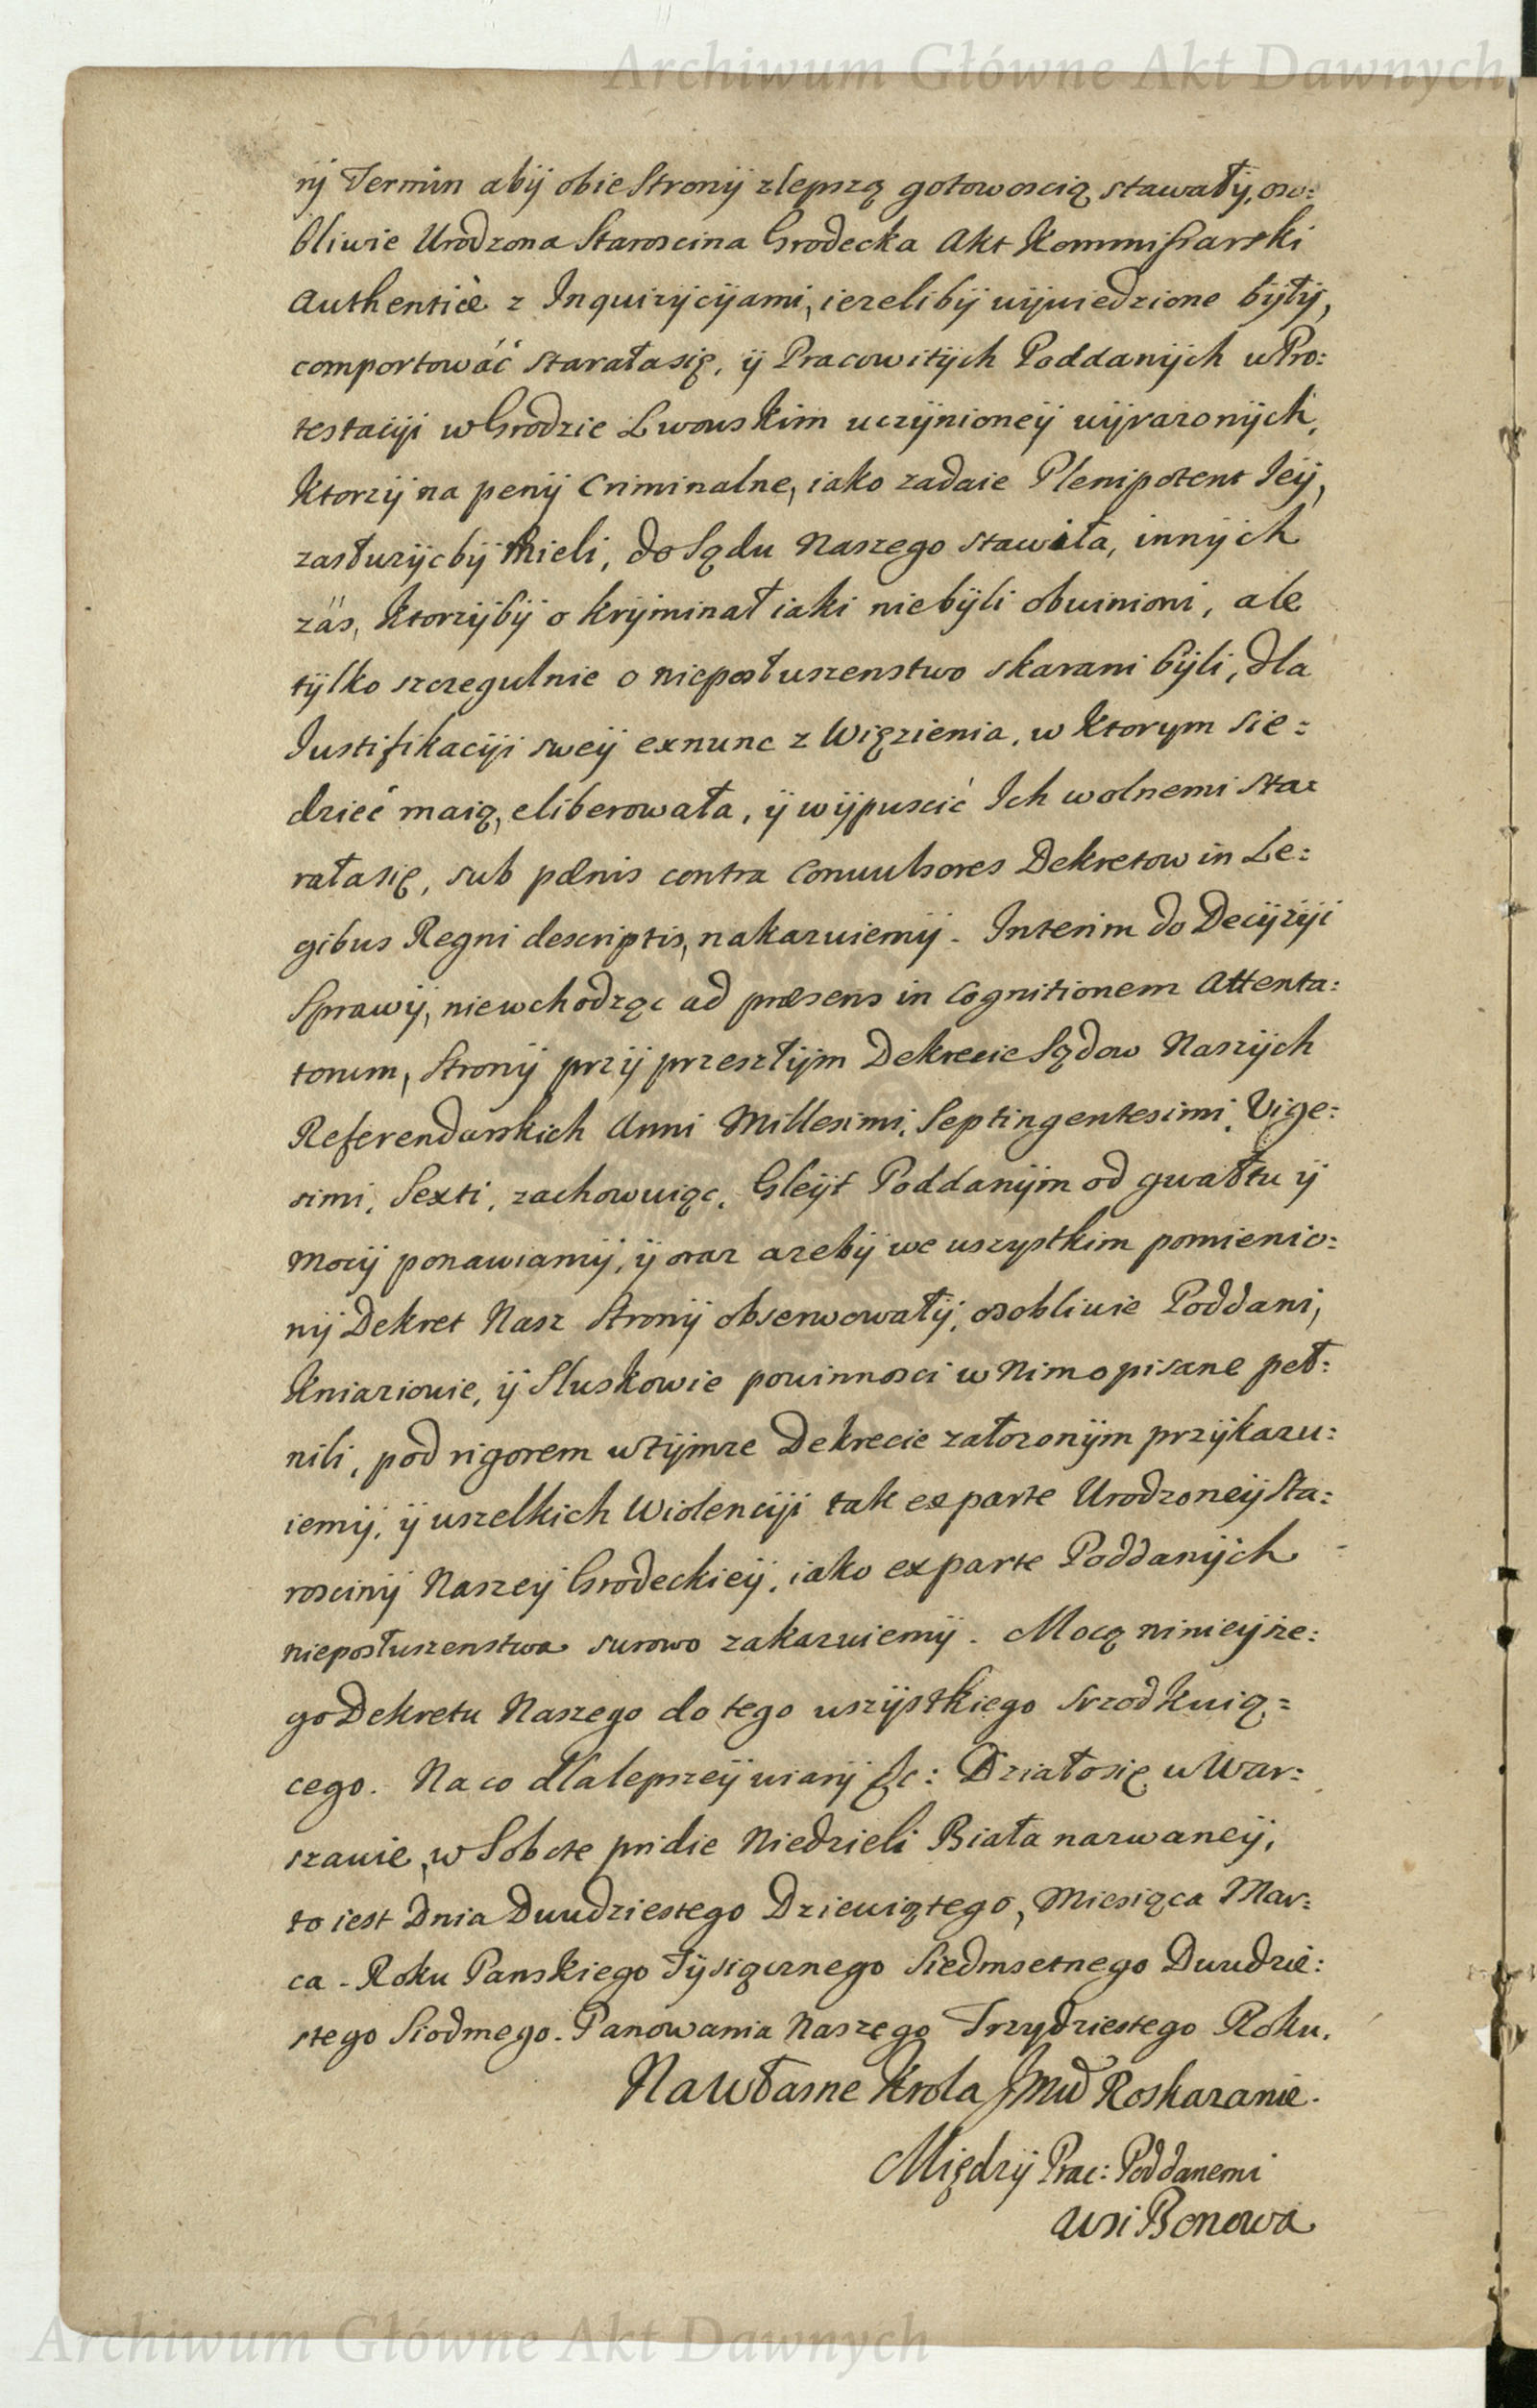 Archiwum Główne Akt Dawnych
nÿ Termin abÿ obie Stronÿ zlepszą gotowoscią stawałÿ, oso=
bliwie Urodzona Staroscina Grodecka Akt Kommissarski
Authenticè z Inquizÿcÿami, iezelibÿ wÿwiedzione bÿłÿ,
comportowáć starałasię, ÿ Pracowitÿch Poddanÿch w Pro:
testacÿi w Grodzie Lwowskim uczÿnioneÿ wÿrazonÿch,
Ktorzÿ na penÿ Criminalne, iako zadaie Plenipotent Ieÿ,
zasłuzÿcbÿ mieli, do Sądu Naszego stawiła, innÿch
zás, Ktorzÿbÿ o krÿminał iaki niebÿli obwinioni, ale
tÿlko szczegulnie o nieposłuszenstwo skarani bÿli, dla
Iustifikacÿi sweÿ exnunc z Więzienia, w Ktorym sie=
dzieć maią, eliberowała, ÿ wÿpuscić Ich wolnemi sta=
rałasię, sub pœnis contra Convulsores Dekretow in Le=
gibus Regni descriptis, nakazuiemÿ. Interim do Decÿzÿi
Sprawÿ, niewchodząc ad præsens in Cognitionem Attenta:
torum, Stronÿ przÿ przeszłÿm Dekrecie Sądow Naszÿch
Referendarskich Anni Millesimi, Septingentesimi, Vige:
simi, Sexti, zachowuiąc, Gleÿt Poddanÿm od gwałtu ÿ
mocÿ ponawiamÿ, ÿ oraz azebÿ we wszystkim pomienio:
nÿ Dekret Nasz Stronÿ obserwowałÿ, osobliwie Poddani,
Kniaziowie, ÿ Sluskowie powinnosci w Nim opisane peł:
nili, pod rigorem w tÿmze Dekrecie załozonÿm przÿkazu:
iemÿ, ÿ wszelkich Wiolencÿi tak ex parte Urodzoneÿ Sta:
roscinÿ Naszeÿ Grodeckieÿ, iako ex parte Poddanÿch
nieposłuszenstwa surowo zakazuiemÿ. Mocą ninieÿsze:
go Dekretu Naszego do tego wszÿstkiego srzodkuią=
cego. Na co dla lepszeÿ wiarÿ &c: Działosię w War:
szawie, w Sobote pridie Niedzieli Biała nazwaneÿ,
to iest Dnia Dwudziestego Dziewiątego, Miesiąca Mar:
ca. Roku Panskiego Tÿsiącznego Siedmsetnego Dwudzie:
stego Siodmego. Panowania Naszego Trzydziestego Roku.
Na Własne Krola Jmci Roskazanie.
Międzÿ Prac: Poddanemi
wsi Bonowa
Archiwum Główne Akt Dawnych